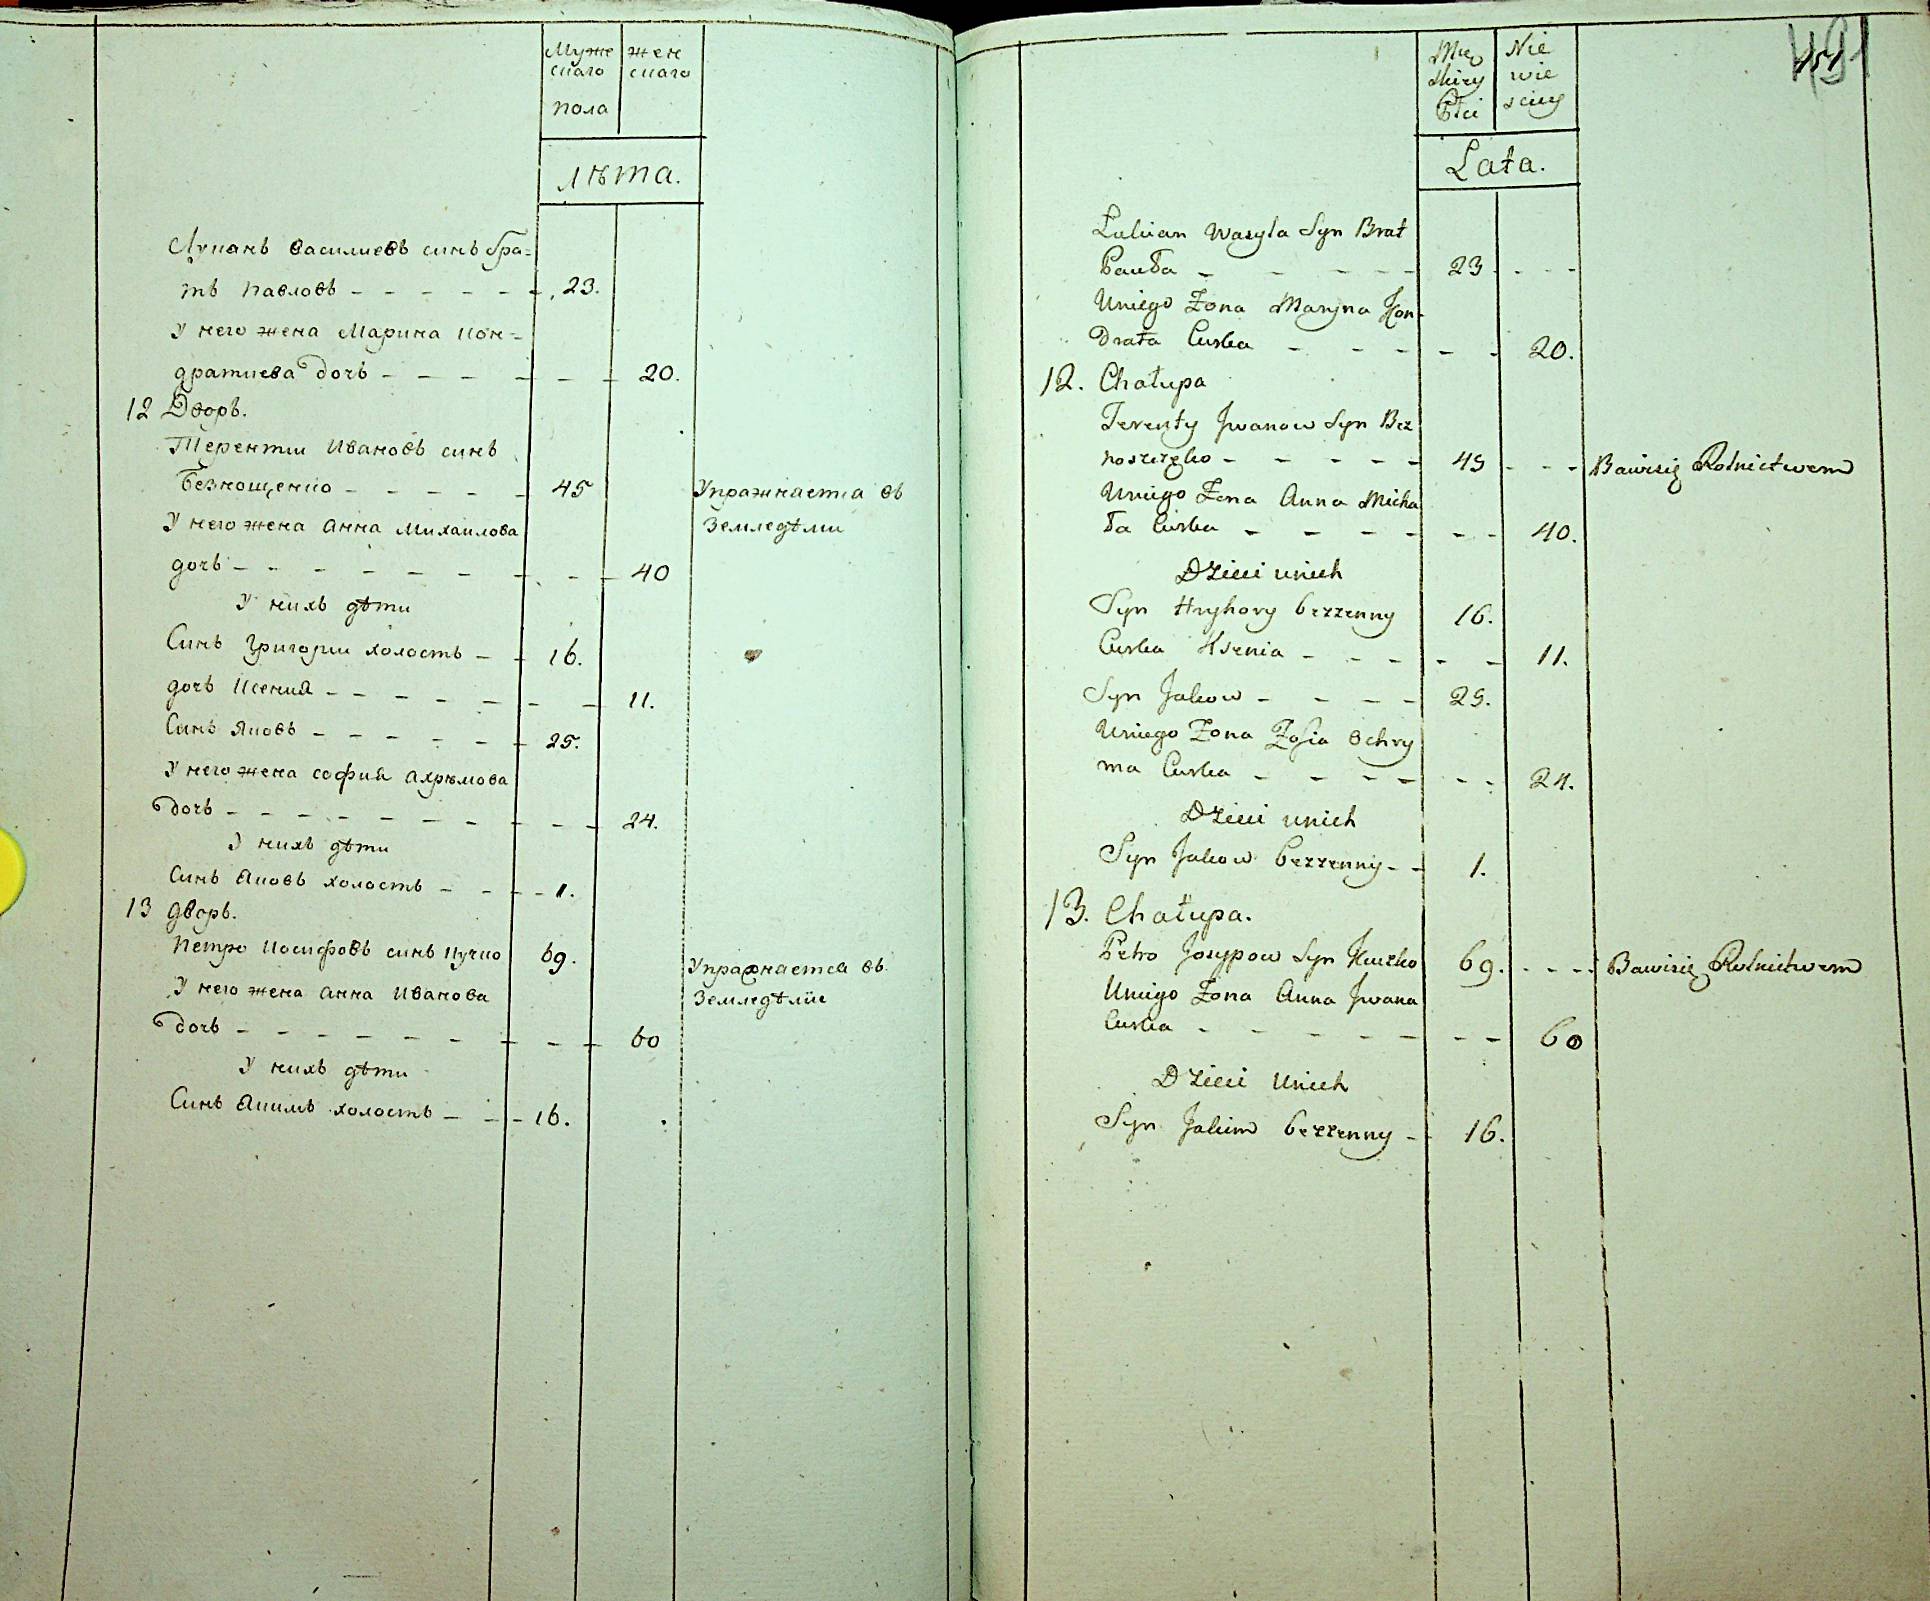 Муже
скаго
пола
жен
скаго
лѣта.
Лукянъ Василиевъ синъ бра=
тъ Павловъ - - - - - - 23.
У него жена Марина Кон=
дратиева дочь - - - - - - 20.
12 Дворъ.
Терентии Ивановъ синъ
Безнощенко - - - - - 45 Упражнается въ
Земледѣлии
У него жена Анна Михаилова
дочь - - - - - - - - - 40
У нихъ дѣти
Синъ Григории холостъ - - 16.
дочь Ксения - - - - - - - 11.
Синъ Яковъ - - - - - - 25.
У него жена София Ахрѣмова
дочь - - - - - - - - - 24.
У нихъ дѣти
Синъ Яковъ холостъ - - - - 1.
13 дворъ.
Петро Иосифовъ синъ Кучко 69. Упражнается въ
Земледѣлие
У него жена Анна Иванова
дочь - - - - - - - - - 60
У нихъ дѣти
Синъ Якимъ холостъ - - - 16.
451
Mę
skiey
Płci
Nie
wie
sciey
Lata.
Lukian Wasyla Syn Brat
Pawła - - - - - 23 - - -
Uniego Zona Maryna Kon-
Drata Curka - - - - - 20.
12. Chałupa
Terenty Jwanow Syn Bez
noszczęko - - - - - 45 - - - Bawisię Rolnictwem
Uniego Zona Anna Micha
ła Curka - - - - - - 40.
Dzieci unich
Syn Hryhory bezzenny 16.
Curka Ksenia - - - - - 11.
Syn Jakow - - - - 25.
Uniego Zona Zofia Ochry
ma Curka - - - - - - 24.
Dzieci unich
Syn Jakow bezzenny - - 1.
13. Chałupa.
Petro Jozypow Syn Kuczko 69. - - - - Bawisię Rolnictwem
Uniego Zona Anna Jwana
Curka - - - - - - - - 60
Dzieci Unich
Syn Jakim bezzenny - 16.